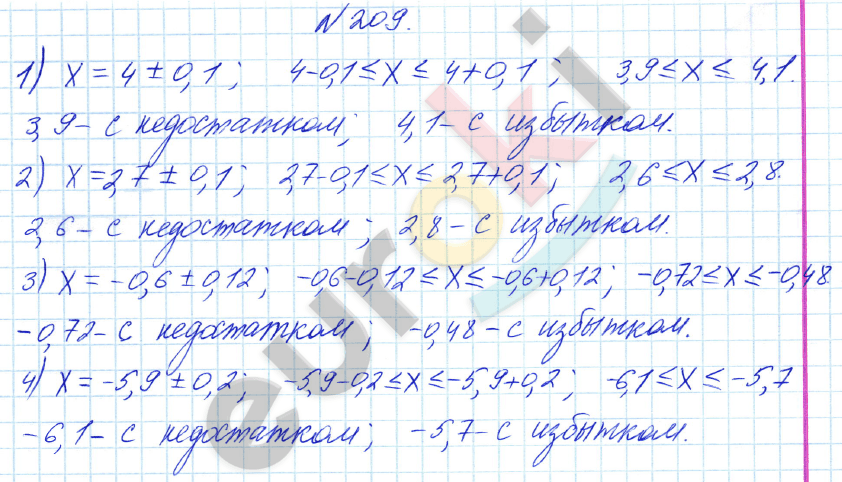 № 209.
1) x = 4 ± 0,1 ; 4-0,1 ≤ x ≤ 4+0,1 ; 3,9 ≤ x ≤ 4,1.
3,9 - с недостатком; 4,1 - с избытком.
2) x = 2,7 ± 0,1; 2,7-0,1 ≤ x ≤ 2,7+0,1; 2,6 ≤ x ≤ 2,8.
2,6 - с недостатком; 2,8 - с избытком.
3) x = -0,6 ± 0,12; -0,6-0,12 ≤ x ≤ -0,6+0,12; -0,72 ≤ x ≤ -0,48.
-0,72 - с недостатком; -0,48 - с избытком.
4) x = -5,9 ± 0,2; -5,9-0,2 ≤ x ≤ -5,9+0,2; -6,1 ≤ x ≤ -5,7
-6,1 - с недостатком; -5,7 - с избытком.
euroki